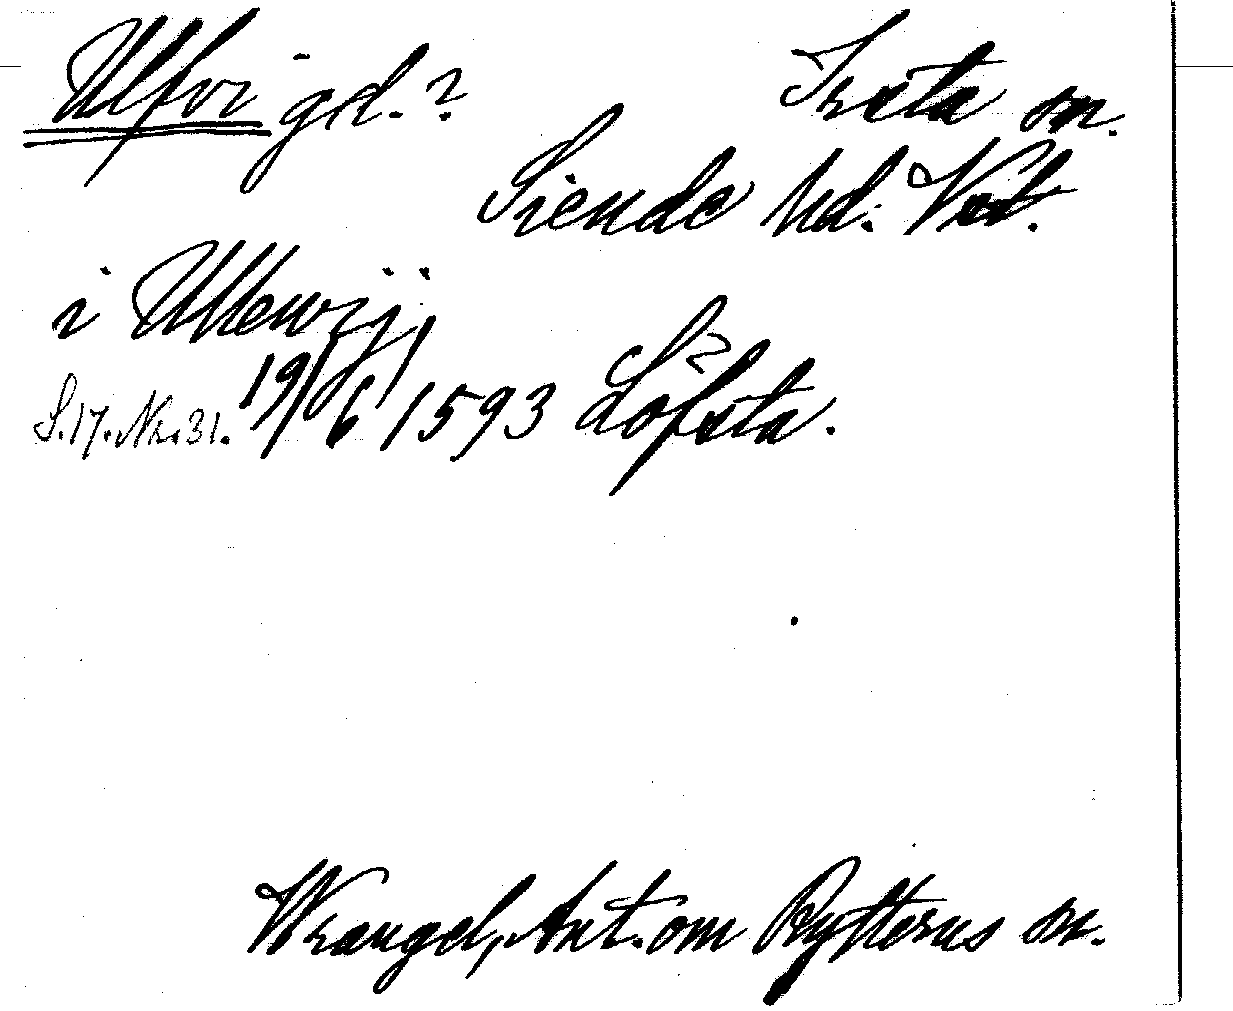 Ulfvi gd.? Irsta sn.
Siende hd. Vstl.
i Ullewij,
S.17. Nr. 31. 19/6 1593 Löfsta.
Wrangel, Ant. om Rytterns sn.